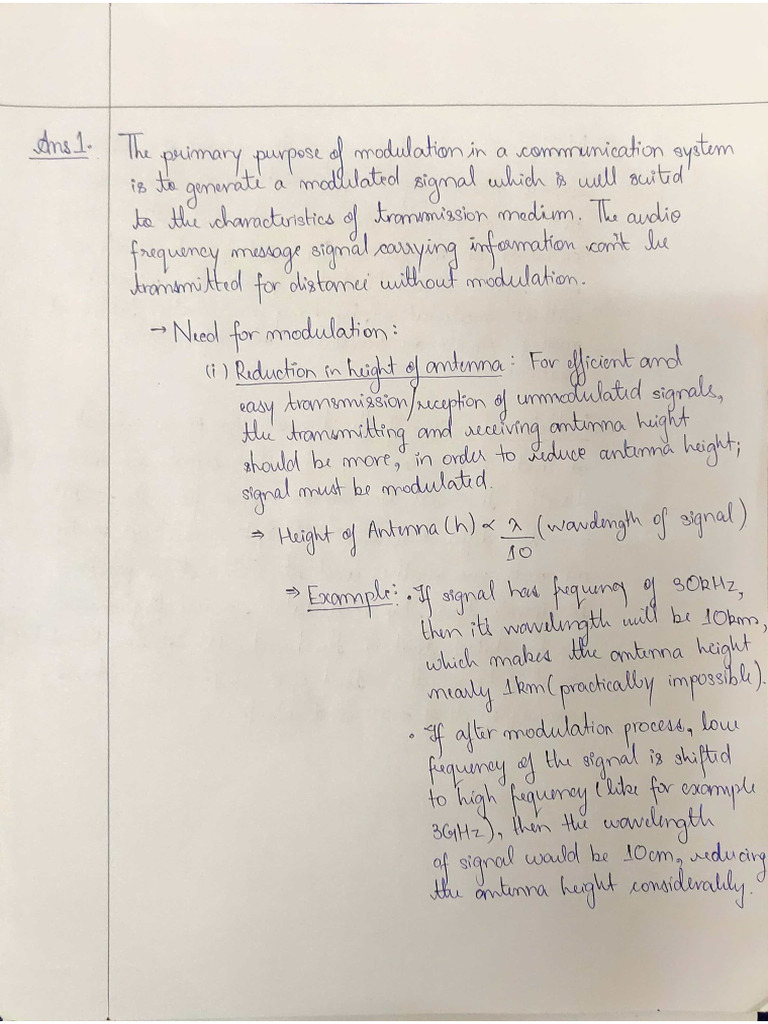 Ans 1. The primary purpose of modulation in a communication system
is to generate a modulated signal which is well suited
to the characteristics of transmission medium. The audio
frequency message signal carrying information can't be
transmitted for distance without modulation.
→ Need for modulation:
(i) Reduction in height of antenna: For efficient and
easy transmission/reception of unmodulated signals,
the transmitting and receiving antenna height
should be more, in order to reduce antenna height;
signal must be modulated.
⇒ Height of Antenna (h) ∝ λ/10 (wavelength of signal)
⇒ Example: • If signal has fequency of 30kHz,
then it's wavelength will be 10km,
which makes the antenna height
nearly 1km (practically impossible).
• If after modulation process, low
fequency of the signal is shifted
to high fequency (like for example
3GHz), then the wavelength
of signal would be 10cm, reducing
the antenna height considerably.